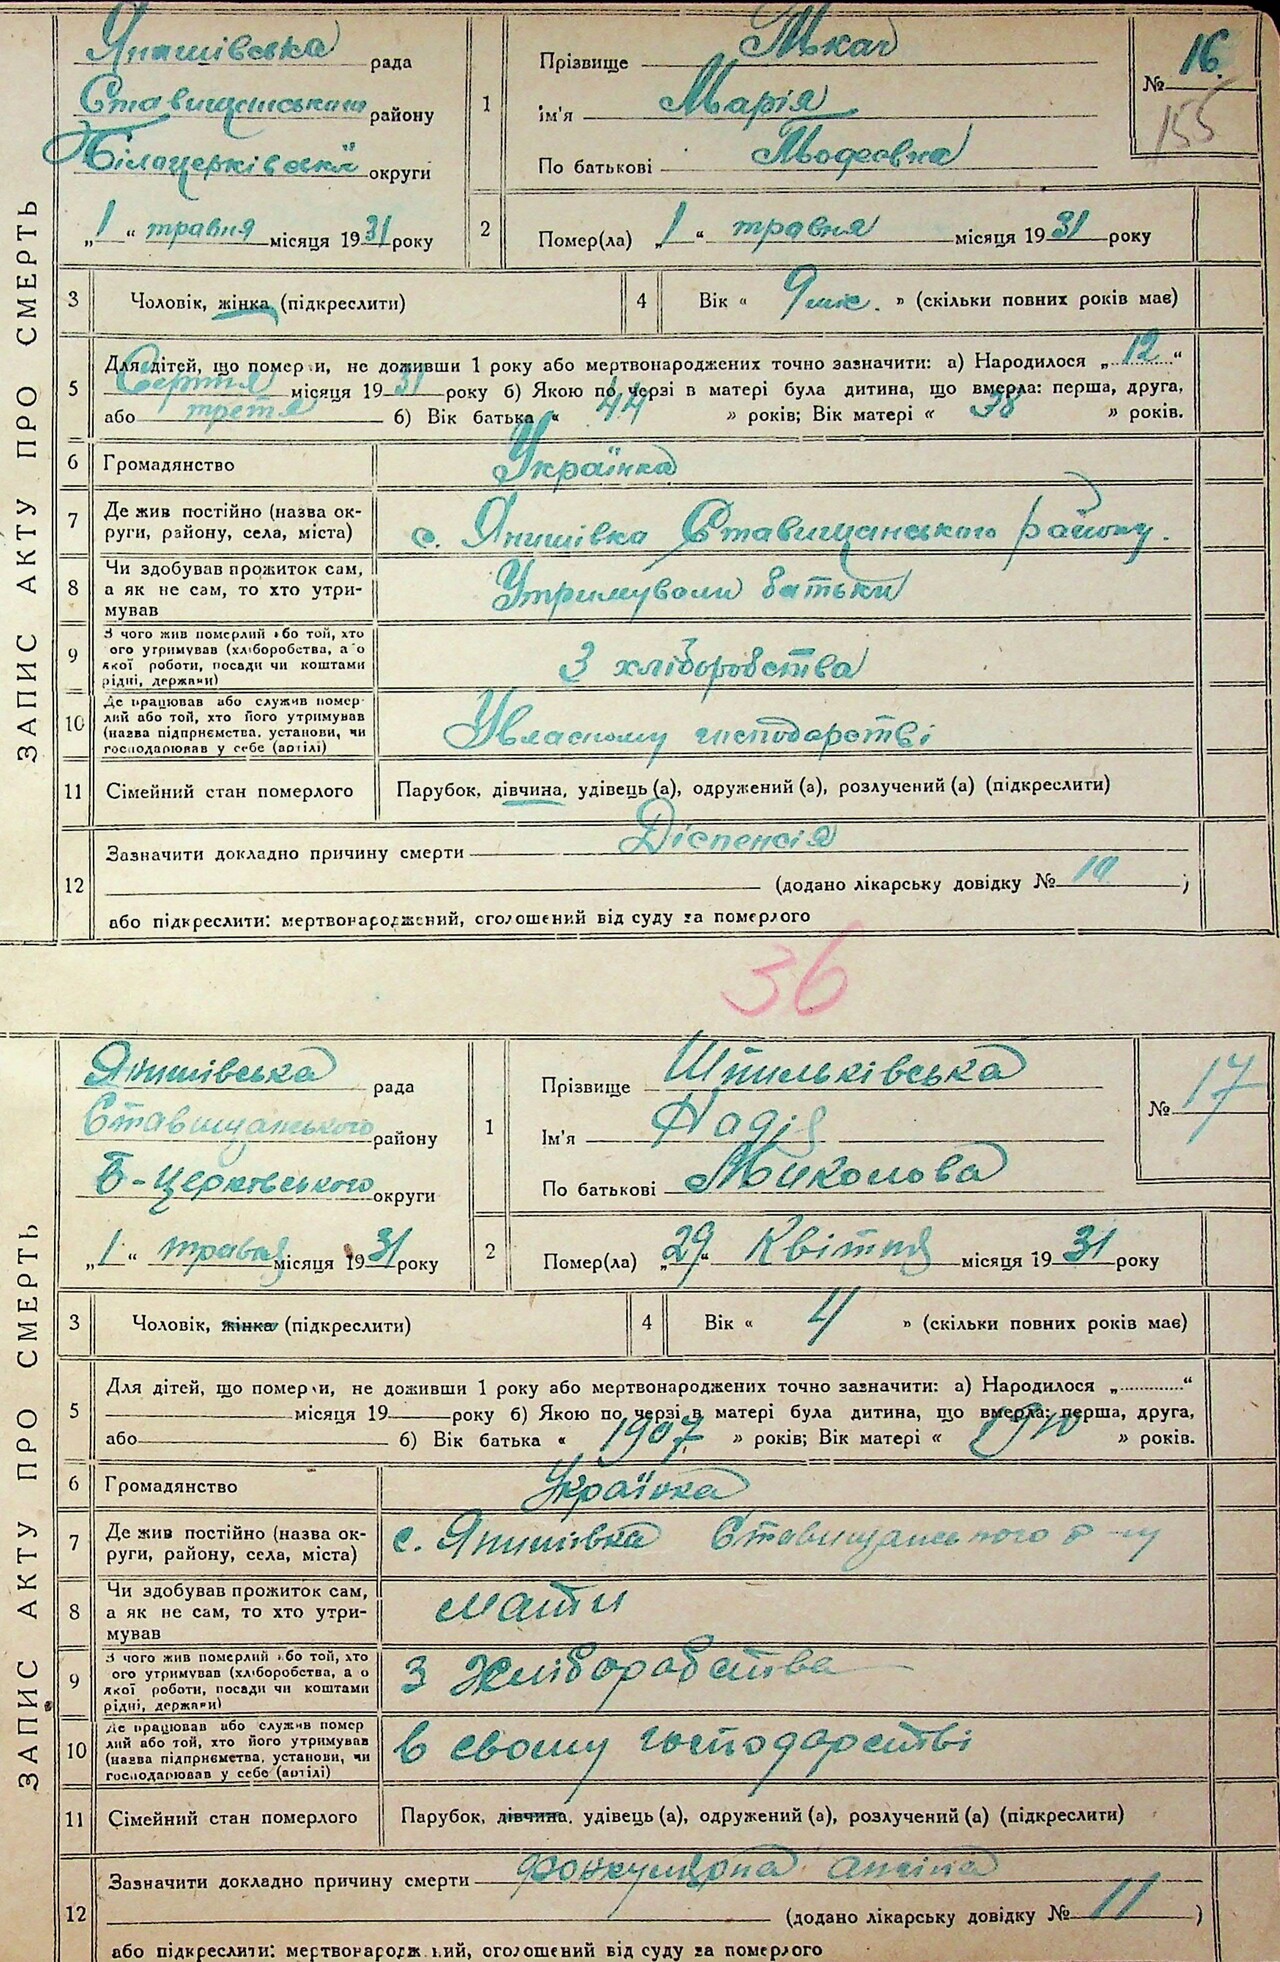 ЗАПИС АКТУ ПРО СМЕРТЬ
Янишівська рада
Ставищанського району
Білоцерківськ округи
„1“ травня місяця 1931 року
№ 16
155
1 Прізвище Ткач
Ім'я Марія
По батькові
2 Помер(ла) „1“ травня місяця 1931 року
3 Чоловік, жінка (підкреслити)
4 Вік « 9 міс. » (скільки повних років має)
5 Для дітей, що померли, не доживши 1 року або мертвонароджених точно зазначити: а) Народилося „12“
Серпня місяця 1931 року б) Якою по черзі в матері була дитина, що вмерла: перша, друга,
або третя б) Вік батька « 44 » років; Вік матері « 38 » років.
6 Громадянство Українка
7 Де жив постійно (назва округи, району, села, міста) с. Янишівка Ставищанського району.
8 Чи здобував прожиток сам, а як не сам, то хто утримував Утримували батьки
9 З чого жив померлий або той, хто його утримував (хліборобства, або якої роботи, посади чи коштами рідні, держави) З хліборобства
10 Де працював або служив померлий або той, хто його утримував (назва підприємства, установи, чи господарював у себе (артілі) У власному господарстві
11 Сімейний стан померлого Парубок, дівчина, удівець (а), одружений (а), розлучений (а) (підкреслити)
12 Зазначити докладно причину смерти Діспенсія
(додано лікарську довідку № 10 )
або підкреслити: мертвонароджений, оголошений від суду за померлого
36
ЗАПИС АКТУ ПРО СМЕРТЬ
Янишівська рада
Ставищанського району
Б-Церковського округи
„1“ травня місяця 1931 року
№ 17
1 Прізвище Шпильківська
Ім'я Надія
По батькові Миколова
2 Помер(ла) „29“ Квітня місяця 1931 року
3 Чоловік, жінка (підкреслити)
4 Вік « 4 » (скільки повних років має)
5 Для дітей, що померли, не доживши 1 року або мертвонароджених точно зазначити: а) Народилося „ “
місяця 19 року б) Якою по черзі в матері була дитина, що вмерла: перша, друга,
або б) Вік батька « 1907 » років; Вік матері « 1910 » років.
6 Громадянство Українка
7 Де жив постійно (назва округи, району, села, міста) с. Янишівка Ставищанського р-ну
8 Чи здобував прожиток сам, а як не сам, то хто утримував мати
9 З чого жив померлий або той, хто його утримував (хліборобства, або якої роботи, посади чи коштами рідні, держави) З хліборобства
10 Де працював або служив померлий або той, хто його утримував (назва підприємства, установи, чи господарював у себе (артілі) в свому господарстві
11 Сімейний стан померлого Парубок, дівчина, удівець (а), одружений (а), розлучений (а) (підкреслити)
12 Зазначити докладно причину смерти
(додано лікарську довідку № 11 )
або підкреслити: мертвонароджений, оголошений від суду за померлого